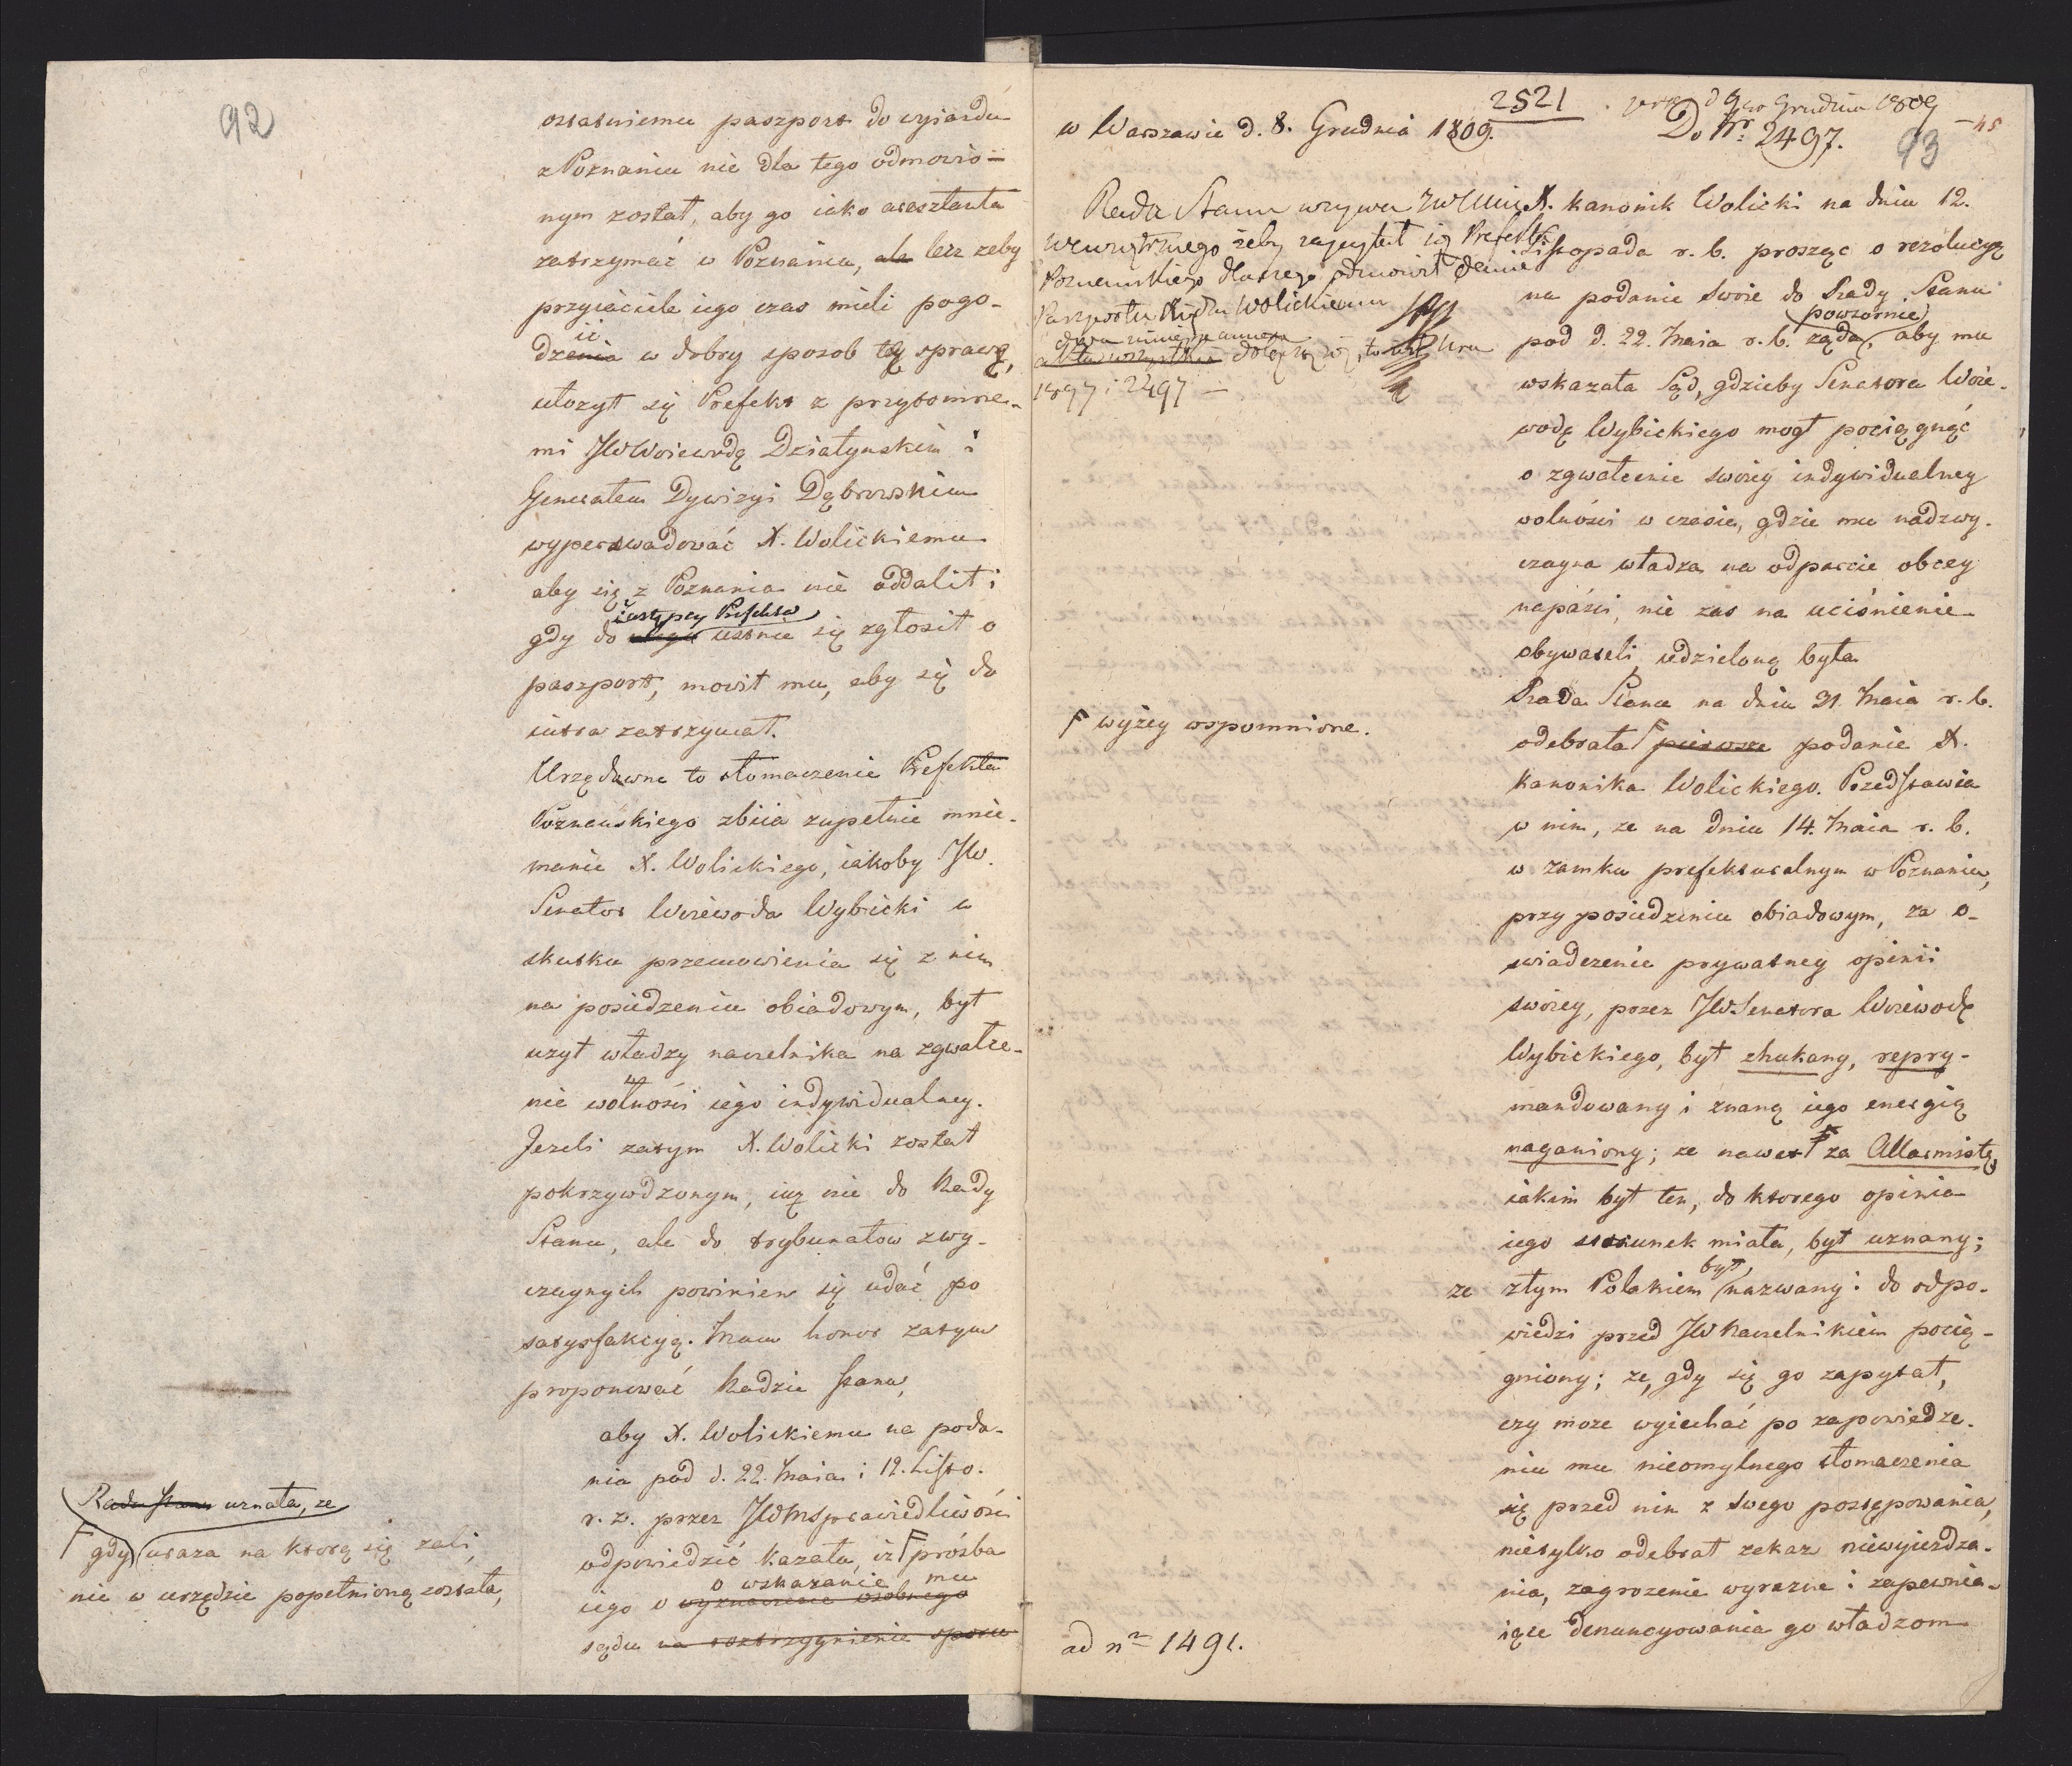 92
ostatniemu paszport do wyiazdu
z Poznania nie dla tego odmowio-
nym został, aby go iako aresztanta
zatrzymać w Poznaniu, ale lecz zeby
przyiaciele iego czas mieli pogo-
ić
dzenia w dobry sposob tę sprawę,
ułozył się Prefekt z przytomne-
mi JW Woiewodą Działyńskim i
Generałem Dywizyi Dąbrowskim
wyperswadować X. Wolickiemu
aby się z Poznania nie oddalił i
zastępcy Prefekta
gdy do ustnie się zgłosił o
paszport, mowił mu, aby się do
iutra zatrzymał.
Urzędowne to tłomaczenie Prefekta
Poznańskiego zbiia zupełnie mnie-
manie X. Wolickiego, iakoby JW.
Senator Woiewoda Wybicki w
skutku przemowienia się z nim
na posiedzeniu obiadowym, był
uzył władzy naczelnika na zgwałce-
nie wolności iego indywidualney.
Jezeli zatym X. Wolicki został
pokrzywdzonym, iuz nie do Rady
Stanu, ale do trybunałow zwy-
czaynych powinien się udać po
satysfakcyą. Mam honor zatym
proponować Radzie Stanu,
aby X. Wolickiemu na poda-
nia pod d. 22. Maia i 12. Listo.
r. z. przez JWMSprawiedliwości
odpowiedzić kazała, iz prośba
o wskazanie mu
iego o wyznaczenie osobnego
sądu na rozstrzygnienie sporu
Rada Stanu uznała, ze
gdy uraza na ktorą się zali,
nie w urzędzie popełnioną została,
w Warszawie d. 8. Grudnia 1809.
2521
d 9 Grudnia 1809
Do Nr. 2497.
45
93
Rada Stanu wzywa
Wewnętrznego żeby zapytał się Prefekta
Poznańskiego dlaczego odmowił danie
Paszportu Xiędzu Wolickiemu
1897 i 2497 —
X. kanonik Wolicki na dniu 12.
Listopada r. b. prosząc o rezolucyą
na podanie swoie do Rady Stanu
powtornie
pod d. 22. Maia r. b. ząda, aby mu
wskazała Sąd, gdzieby Senatora Woie-
wodę Wybickiego mogł pociągnąć
o zgwałcenie swoiey indywidualney
wolności w czasie, gdzie mu nadzwy-
czayna władza na odparcie obcey
napaści, nie zas na uciśnienie
obywateli, udzieloną była
Rada Stanu na dniu 31. Maia r. b.
odebrała pierwsze podanie X.
wyżey wspomnione.
Kanonika Wolickiego. Przedstawia
w nim, ze na dniu 14. Maia r. b.
w zamku prefekturalnym w Poznaniu,
przy posiedzeniu obiadowym, za o-
swiadczenie prywatney opinii
swoiey, przez JW. Senatora Woiewodę
Wybickiego, był zhukany, repry-
mandowany i znaną iego energią
naganiony; ze nawet za Allarmistę,
iakim był ten, do ktorego opinia
iego stosunek miała, był uznany;
był
ze złym Polakiem nazwany i do odpo-
wiedzi przed JW Naczelnikiem pocią-
gniony; ze, gdy się go zapytał,
czy moze wyiechać po zapowiedze-
niu mu nieomylnego tłomaczenia
się przed nim z swego postępowania,
nietylko odebrał zakaz niewyiezdza-
nia, zagrozenie wyrazne i zapewnia-
iące denuncyowania go władzom
ad nr 1491.